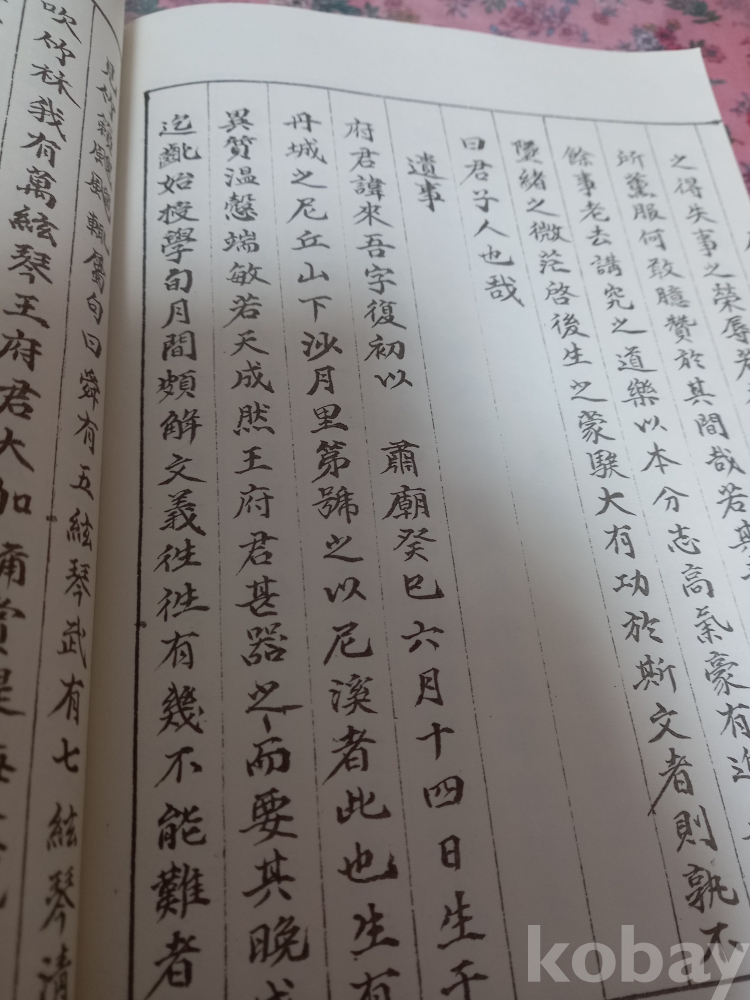 之得失事之榮辱若
所薰服何敢臆贊於其間哉若
餘事老去講究之道樂以本分志高氣豪有
墜緒之微茫啓後生之蒙騃大有功於斯文者則孰不
曰君子人也哉
遺事
府君諱來吾字復初以 肅廟癸巳六月十四日生于
丹城之尼丘山下沙月里第號之以尼溪者此也生有
異質溫慤端敏若天成然王府君甚器之而要其晩成
迄齔始授學旬月間頗解文義徃徃有幾不能難者
屬句曰舜有五絃琴武有七絃琴清
吹竹林我有萬絃琴王府君大加
kobay